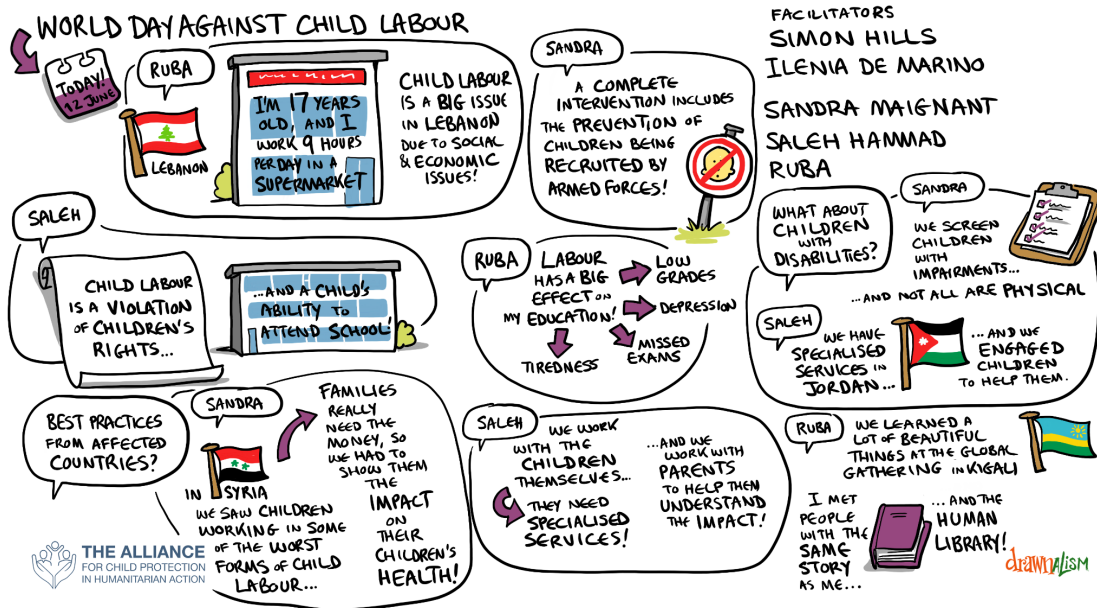 WORLD DAY AGAINST CHILD LABOUR
TODAY!
12 JUNE
RUBA
LEBANON
I'M 17 YEARS
OLD, AND I
WORK 9 HOURS
PER DAY IN A
SUPERMARKET
CHILD LABOUR
IS A BIG ISSUE
IN LEBANON
DUE TO SOCIAL
& ECONOMIC
ISSUES!
SANDRA
A COMPLETE
INTERVENTION INCLUDES
THE PREVENTION OF
CHILDREN BEING
RECRUITED BY
ARMED FORCES!
FACILITATORS
SIMON HILLS
ILENIA DE MARINO
SANDRA MAIGNANT
SALEH HAMMAD
RUBA
SALEH
CHILD LABOUR
IS A VIOLATION
OF CHILDREN'S
RIGHTS...
...AND A CHILD'S
ABILITY TO
ATTEND SCHOOL!
RUBA
LABOUR
HAS A BIG
EFFECT ON
MY EDUCATION!
LOW
GRADES
DEPRESSION
MISSED
EXAMS
TIREDNESS
WHAT ABOUT
CHILDREN
WITH
DISABILITIES?
SANDRA
WE SCREEN
CHILDREN
WITH
IMPAIRMENTS...
...AND NOT ALL ARE PHYSICAL
SALEH
WE HAVE
SPECIALISED
SERVICES IN
JORDAN...
...AND WE
ENGAGED
CHILDREN
TO HELP THEM.
BEST PRACTICES
FROM AFFECTED
COUNTRIES?
SANDRA
IN SYRIA
WE SAW CHILDREN
WORKING IN SOME
OF THE WORST
FORMS OF CHILD
LABOUR...
FAMILIES
REALLY
NEED THE
MONEY, SO
WE HAD TO
SHOW THEM
THE
IMPACT
ON
THEIR
CHILDREN'S
HEALTH!
SALEH
WE WORK
WITH THE
CHILDREN
THEMSELVES...
THEY NEED
SPECIALISED
SERVICES!
...AND WE
WORK WITH
PARENTS
TO HELP THEM
UNDERSTAND
THE IMPACT!
RUBA
WE LEARNED A
LOT OF BEAUTIFUL
THINGS AT THE GLOBAL
GATHERING IN KIGALI
I MET
PEOPLE
WITH THE
SAME
STORY
AS ME...
...AND THE
HUMAN
LIBRARY!
THE ALLIANCE
FOR CHILD PROTECTION
IN HUMANITARIAN ACTION
drawnALISM